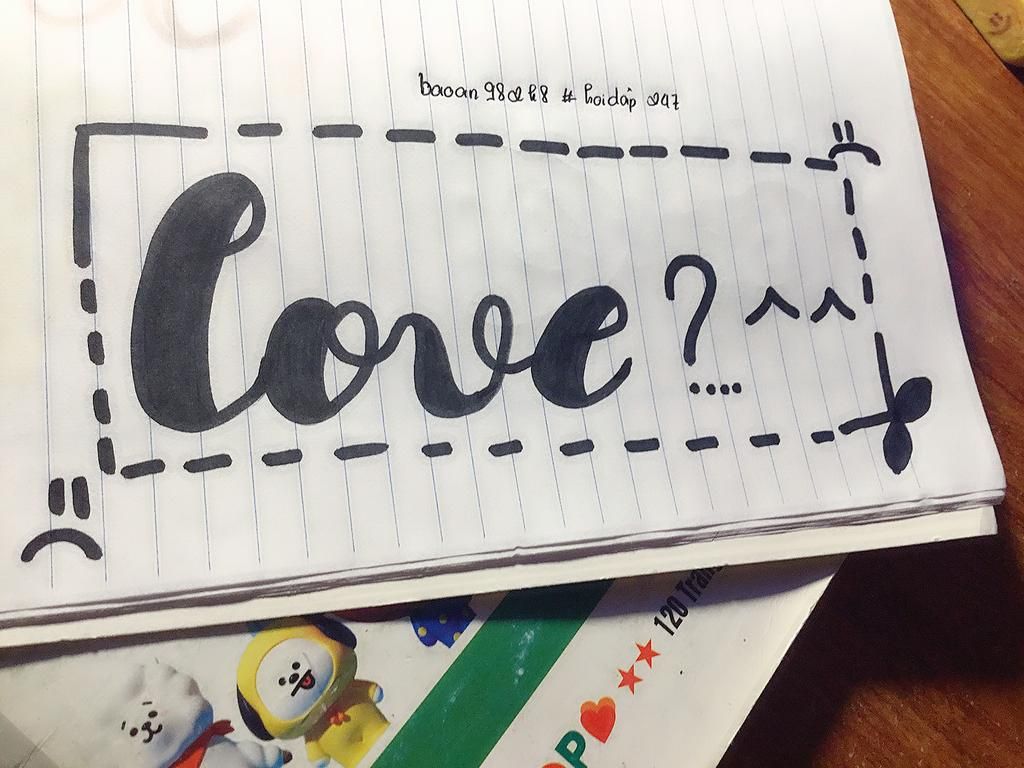 baoan98dk8 # hoidap 247
Love? ^^
120 Tran
OP